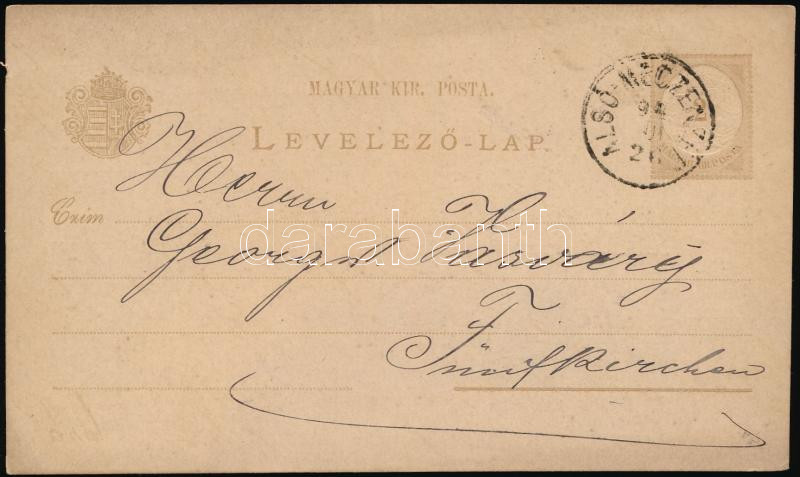 MAGYAR KIR. POSTA.
LEVELEZŐ-LAP.
ALSÓ-MECZENZÉF
94
01
26
Herrn
Czim
Georg Vasváry
Fünfkirchen
darabanth